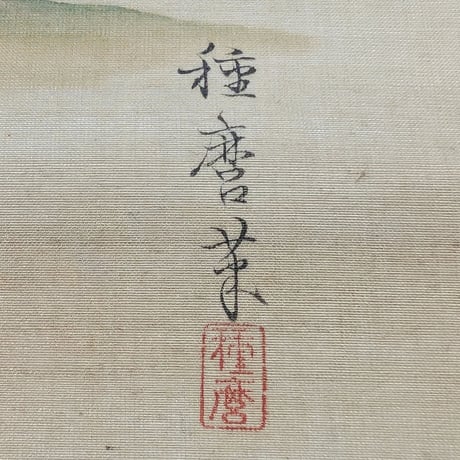 種麿筆
種麿